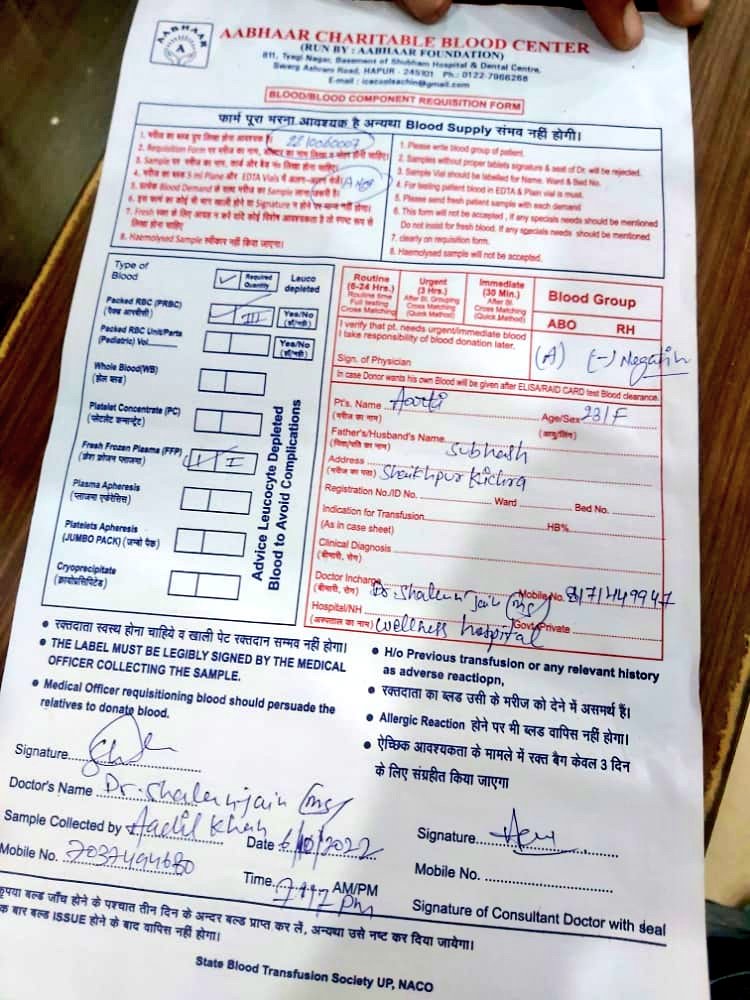 AABHAAR
A
AABHAAR CHARITABLE BLOOD CENTER
(RUN BY : AABHAAR FOUNDATION)
811, Tyagi Nagar, Basement of Shubham Hospital & Dental Centre,
Swarg Ashram Road, HAPUR - 245101 Ph.: 0122-7966268
BLOOD/BLOOD COMPONENT REQUISITION FORM
फार्म पूरा भरना आवश्यक है अन्यथा Blood Supply संभव नहीं होगी।
1. मरीज का ब्लड ग्रुप लिखा होना आवश्यक है।
2. Requisition Form पर मरीज का नाम, डॉक्टर का नाम लिखा व मोहर होनी चाहिए।
3. Sample पर मरीज का नाम, वार्ड और बैड नं० लिखा होना चाहिए।
4. मरीज का ब्लड 3 ml Plane और EDTA Vials में अलग-अलग
A Neg
5. प्रत्येक Blood Demand के साथ मरीज का Sample लाना जरूरी है।
6. इस फार्म का कोई भी भाग खाली होने या Signature न होने पर मान्य नहीं होगा।
7. Fresh रक्त के लिए आग्रह न करें यदि कोई विशेष आवश्यकता है तो स्पष्ट रूप से
लिखा होना चाहिए
8. Haemolysed Sample स्वीकार नहीं किया जाएगा।
1. Please write blood group of patient.
2. Samples without proper tablets signature & seat of Dr. will be rejected.
3. Sample Vial should be labelled for Name. Ward & Bed No.
4. For testing patient blood in EDTA & Plain vial is must.
5. Please send fresh patient sample with each demand
6. This form will not be accepted , if any specials needs should be mentioned
Do not insist for fresh blood. If any specials needs should be mentioned
7. clearly on requisition form.
8. Haemolysed sample will not be accepted.
Type of
Blood
Required
Quantity
Leuco
depleted
Packed RBC (PRBC)
(पैक्ड आरबीसी)
III
Yes/No
(हाँ/नहीं)
Packed RBC Unit/Parts
(Pediatric) Vol.
Yes/No
(हाँ/नहीं)
Whole Blood(WB)
(होल ब्लड)
Platelet Concentrate (PC)
(प्लेटलेट कन्सन्ट्रेट)
Fresh Frozen Plasma (FFP)
(फ्रेश फ्रोजन प्लाजमा)
I
Plasma Apheresis
(प्लाजमा एफेरेसिस)
Platelets Apheresis
(JUMBO PACK) (जम्बो पैक)
Cryoprecipitate
(क्रायोप्रेसिपिटेट)
Advice Leucocyte Depleted
Blood to Avoid Complications
Routine
(6-24 Hrs.)
Routine time
Full testing
Cross Matching
Urgent
(3 Hrs.)
After Bl. Grouping
Cross Matching
(Quick Method)
Immediate
(30 Min.)
After Bl.
Cross Matching
(Quick Method)
Blood Group
ABO RH
(A) (-) Negative
I verify that pt. needs urgent/immediate blood
I take responsibility of blood donation later.
Sign. of Physician
In case Donor wants his own Blood will be given after ELISA/RAID CARD test Blood clearance.
Pt's. Name Aarti Age/Sex 23/F
(मरीज का नाम) (आयु/लिंग)
Father's/Husband's Name Subhash
(पिता/पति का नाम)
Address Shaikhpur Kichra
(मरीज का पता)
Registration No./ID No. Ward Bed No.
Indication for Transfusion HB%
(As in case sheet)
Clinical Diagnosis
(बीमारी, रोग)
Doctor Incharge Dr. Shalen Jain (MS) Mobile No. 8171449947
(बीमारी, रोग)
Hospital/NH Wellness hospital Govt./Private
(अस्पताल का नाम)
• रक्तदाता स्वस्थ होना चाहिये व खाली पेट रक्तदान सम्भव नहीं होगा।
• THE LABEL MUST BE LEGIBLY SIGNED BY THE MEDICAL
OFFICER COLLECTING THE SAMPLE.
• Medical Officer requisitioning blood should persuade the
relatives to donate blood.
• H/o Previous transfusion or any relevant history
as adverse reactiopn,
• रक्तदाता का ब्लड उसी के मरीज को देने में असमर्थ हैं।
• Allergic Reaction होने पर भी ब्लड वापिस नहीं होगा।
• ऐच्छिक आवश्यकता के मामले में रक्त बैग केवल 3 दिन
के लिए संग्रहीत किया जाएगा
Signature
Doctor's Name Dr. Shalen Jain (MS)
Sample Collected by Aadil Khan Date 6/10/2022
Mobile No. 7037494680
Time 7:17 Pm AM/PM
Signature
Mobile No.
Signature of Consultant Doctor with seal
कृपया ब्लड जाँच होने के पश्चात तीन दिन के अन्दर ब्लड प्राप्त कर लें, अन्यथा उसे नष्ट कर दिया जायेगा।
बार ब्लड ISSUE होने के बाद वापिस नहीं होगा।
State Blood Transfusion Society UP, NACO